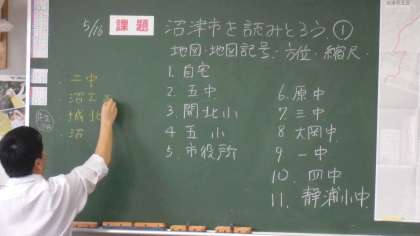 5/16 課題 沼津市を読みとろう ①
地図・地図記号・方位・縮尺
1. 自宅
2. 五中
3. 開北小
4 五小
5. 市役所
6. 原中
7. 三中
8 大岡中
9. 一中
10. 四中
11. 静浦小中
・二中
・沼工
・城北
・沼